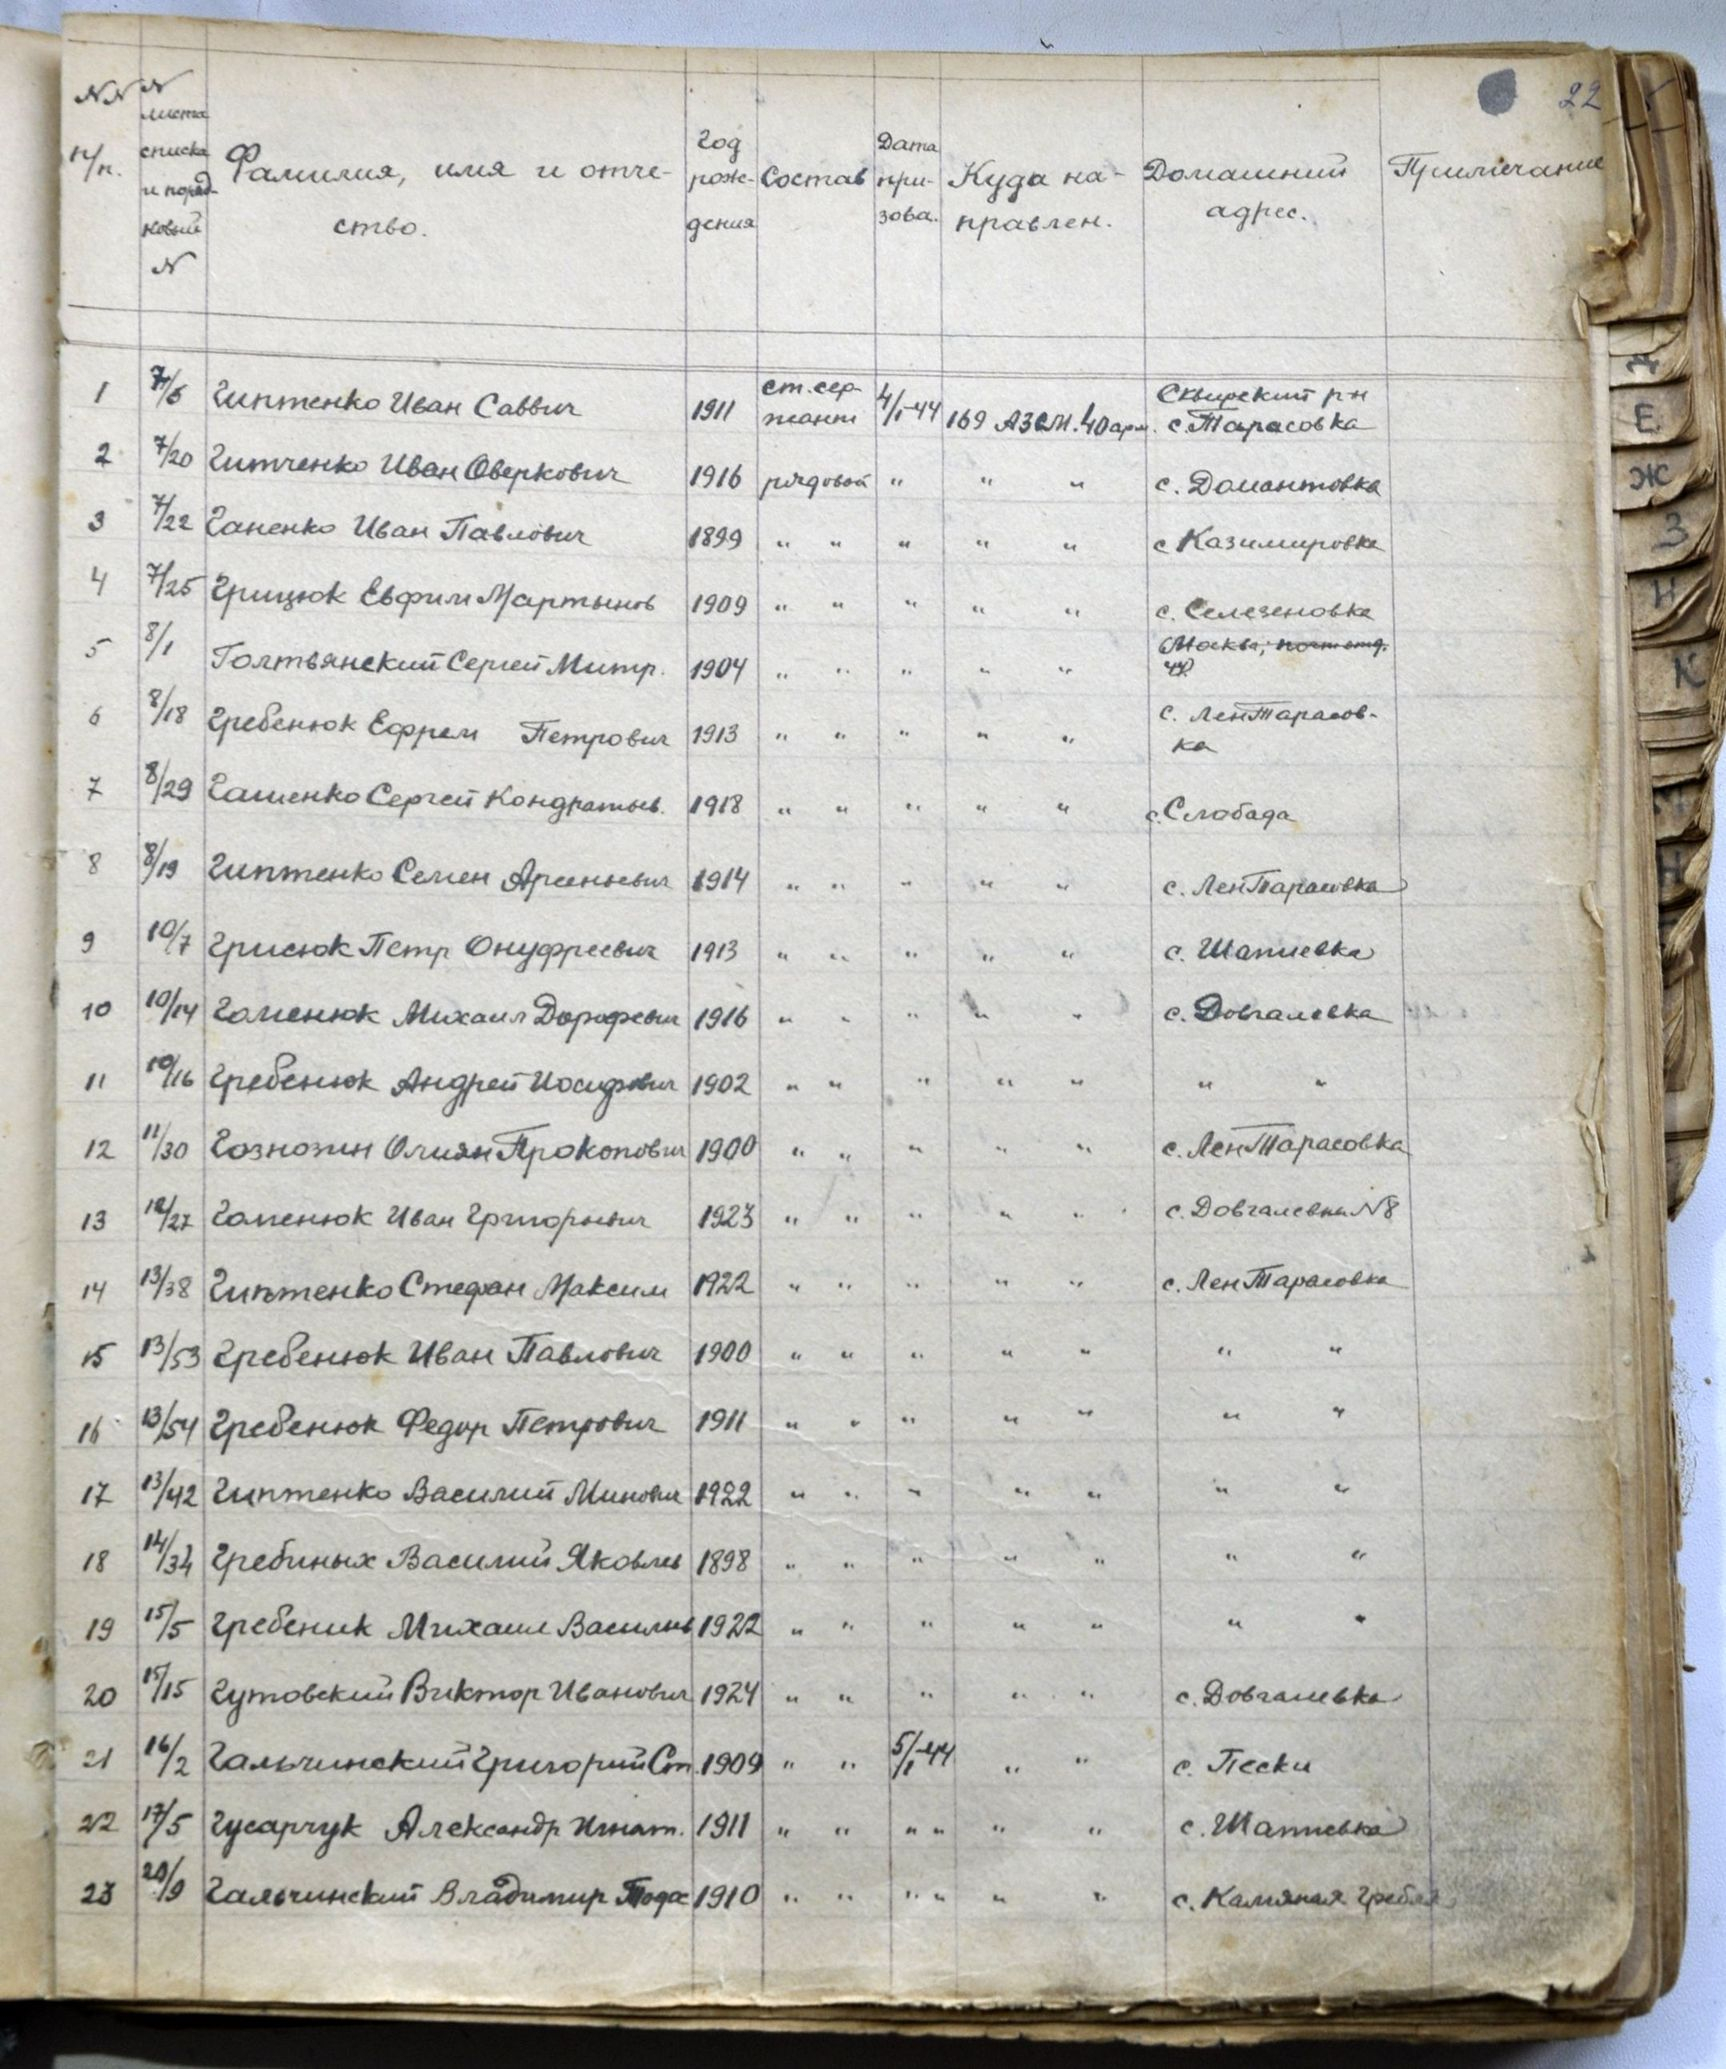 22
№№ п/п.
№ листа списка и порядковый №
Фамилия, имя и отчество.
Год рождения
Состав
Дата призова.
Куда направлен.
Домашний адрес.
Примечание
1 7/5 Гиптенко Иван Саввич 1911 ст. сержант 4/I-44 169 АЗСП. 40 арм. Сквирский рн с. Тарасовка
2 7/20 Гитченко Иван Оверкович 1916 рядовой " " " с. Домантовка
3 7/22 Ганенко Иван Павлович 1899 " " " " " с Казимировка
4 7/25 Грицюк Евфим Мартынов 1909 " " " " " с. Селезеновка
5 8/1 Голтвянский Сергей Митр. 1904 " " " " " Москва, почт отд. 44
6 8/18 Гребенюк Ефрем Петрович 1913 " " " " " с. ЛенТарасовка
7 8/29 Гашенко Сергей Кондратьев. 1918 " " " " " с. Слобода
8 8/19 Гиптенко Семен Арсеньевич 1914 " " " " " с. ЛенТарасовка
9 10/7 Грисюк Петр Онуфреевич 1913 " " " " " с. Шапиевка
10 10/14 Гоменюк Михаил Дорофевич 1916 " " " " " с. Довгалевка
11 10/16 Гребенюк Андрей Иосифович 1902 " " " " " " "
12 11/30 Прокопович 1900 " " " " " с. ЛенТарасовка
13 12/27 Гоменюк Иван Григорьевич 1923 " " " " " с. Довгалевка №8
14 13/38 Гиптенко Стефан Максим 1922 " " " " " с. ЛенТарасовка
15 13/53 Гребенюк Иван Павлович 1900 " " " " " " "
16 13/54 Гребенюк Федор Петрович 1911 " " " " " " "
17 13/42 Гиптенко Василий Минович 1922 " " " " " " "
18 14/34 Гребиных Василий Яковлев 1898 " " " " " " "
19 15/5 Гребеник Михаил Васильев 1922 " " " " " " "
20 15/15 Гутовский Виктор Иванович 1924 " " " " " с. Довгалевка
21 16/2 Гальчинский Григорий Ст. 1909 " " 5/I-44 " " с. Пески
22 17/5 Гусарчук Александр Игнат. 1911 " " " " " " с. Шапиевка
23 20/9 Гальчинский Владимир Тодос 1910 " " " " " " с. Камяная Гребля
Д
Е
Ж
З
И
К
М
Н